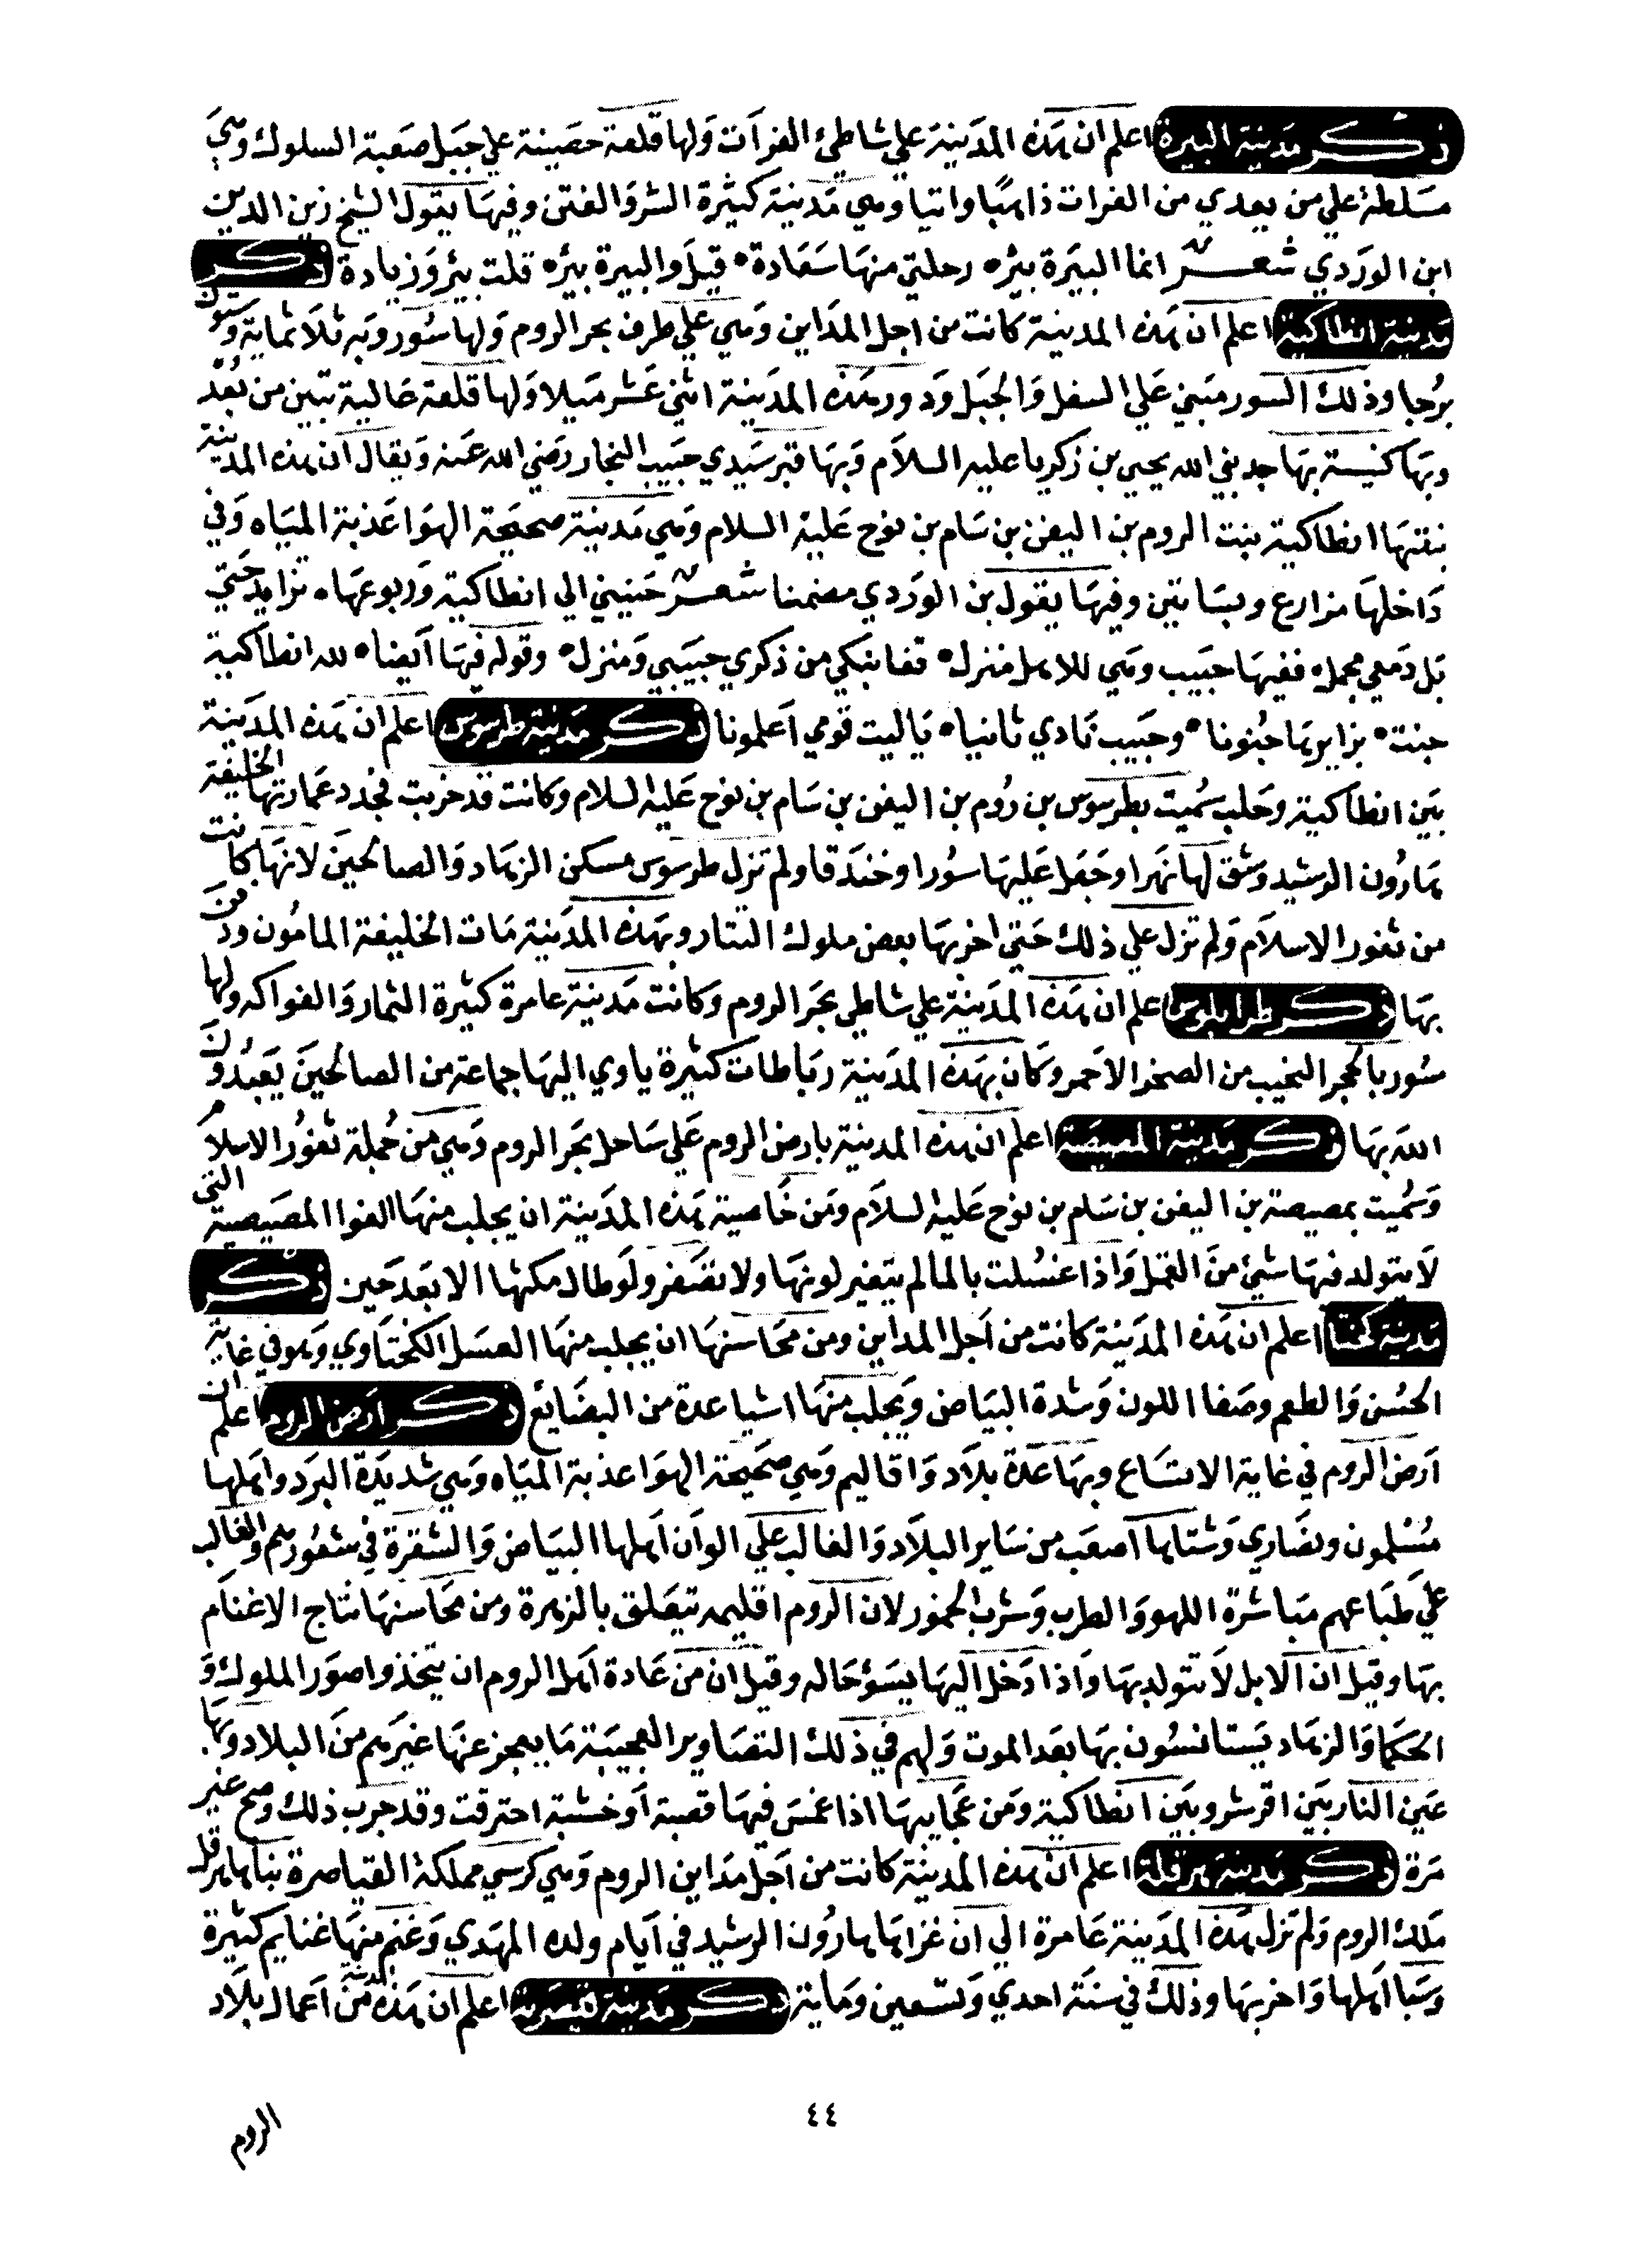 ذكر مدينة البيرة اعلم ان هذه المدينة علي شاطئ الفرات ولها قلعة حصينة علي جبل صعبة السلوك وهي
مسلطة علي من يعدي من الفرات ذاهبا واتيا وهي مدينة كثيرة الشر والفتن وفيها يقول الشيخ زين الدين
ابن الوردي شعر انما البيرة بئره رحلتي منها سعادة قيل والبيرة بئره قلت بئر وزيادة ذكر
مدينة انطاكية اعلم ان هذه المدينة كانت من اجل المداين وهي علي طرف بحر الروم ولها سور وبه ثلاثماية وستون
برجا وذلك السور مبني علي السفل والجبل ودور هذه المدينة اثني عشر ميلا ولها قلعة عالية تبين من بعد
وبها كنيسة بها جد نبي الله يحيي بن زكريا عليه السلام وبها قبر سيدي حبيب النجار رضي الله عنه ويقال ان هذه المدينة
بنتها انطاكية بنت الروم بن اليفن بن سام بن نوح عليه السلام وهي مدينة صحيحة الهوا عذبة المياه وفي
داخلها مزارع وبساتين وفيها يقول بن الوردي مضمنا شعر حنيني الي انطاكية وربوعها تزايد حتي
بل دمعي محمل ففيها حبيب وهي للاهل منزل قفا نبكي من ذكري حبيبي ومنزل وقوله فيها ايضا لله انطاكية
جنت بزايريها جنونا وحبيب نادي ثانيا ياليت قومي اعلمونا ذكر مدينة طرسوس اعلم ان هذه المدينة
بين انطاكية وحلب سميت بطرسوس بن روم بن اليفن بن سام بن نوح عليه السلام وكانت قد خربت فجدد عمارتها الخليفة
هارون الرشيد وشق لها نهرا وجعل عليها سورا وخندقا ولم تزل طرسوس مسكن الزهاد والصالحين لانها كانت
من ثغور الاسلام ولم تزل علي ذلك حتي اخربها بعض ملوك التتار وبهذه المدينة مات الخليفة المامون ودفن
بها ذكر طرابلس اعلم ان هذه المدينة علي شاطي بحر الروم وكانت مدينة عامرة كثيرة الثمار والفواكه ولها
سور بالحجر النحيب من الصخر الاحمر وكان بهذه المدينة رباطات كثيرة ياوي اليها جماعة من الصالحين يعبدون
الله بها ذكر مدينة المصيصة اعلم ان هذه المدينة بارض الروم علي ساحل بحر الروم وهي من جملة ثغور الاسلام
وسميت بمصيصة بن اليفن بن سام بن نوح عليه السلام ومن خاصية هذه المدينة ان يجلب منها الفوا المصيصية التي
لا يتولد فيها شيئ من القمل واذا غسلت بالما لم يتغير لونها ولا تضفر ولو طال مكثها الا بعد حين ذكر
مدينة كختا اعلم ان هذه المدينة كانت من اجل المداين ومن محاسنها ان يجلب منها العسل الكختاوي وهو في غاية
الحسن والطعم وصفا اللون وشدة البياض ويجلب منها اشيا عدة من البضايع ذكر ارض الروم اعلم ان
ارض الروم في غاية الاتساع وبها عدة بلاد واقاليم وهي صحيحة الهوا عذبة المياه وهي شديدة البرد واهلها
مسلمون ونصاري وشتاها اصعب من ساير البلاد والغالب علي الوان اهلها البياض والشقرة في شعورهم والغالب
علي طباعهم مباشرة اللهو والطرب وشرب الخمور لان الروم اقليمه تتعلق بالزهرة ومن محاسنها نتاج الاغنام
بها وقيل ان الابل لا تتولد بها واذا دخل اليها يسؤ حاله وقيل ان من عادة اهل الروم ان يتخذوا صور الملوك و
الحكما والزهاد يستانسون بها بعد الموت ولهم في ذلك التصاوير العجيبة ما يعجز عنها غيرهم من البلاد وبها
عين النار بين اقرشرو بين انطاكية ومن عجايبها اذا غمس فيها قصبة او خشبة احترقت وقد جرب ذلك وصح غير
مرة ذكر مدينة هرقلة اعلم ان هذه المدينة كانت من اجل مداين الروم وهي كرسي مملكة القياصرة بناها هرقل
ملك الروم ولم تزل هذه المدينة عامرة الي ان غزاها هارون الرشيد في ايام ولده المهدي وغنم منها غنايم كثيرة
وسبا اهلها واخربها وذلك في سنة احدي وتسعين وماية ذكر مدينة اعلم ان هذه المدينة من اعمال بلاد
٤٤
الروم